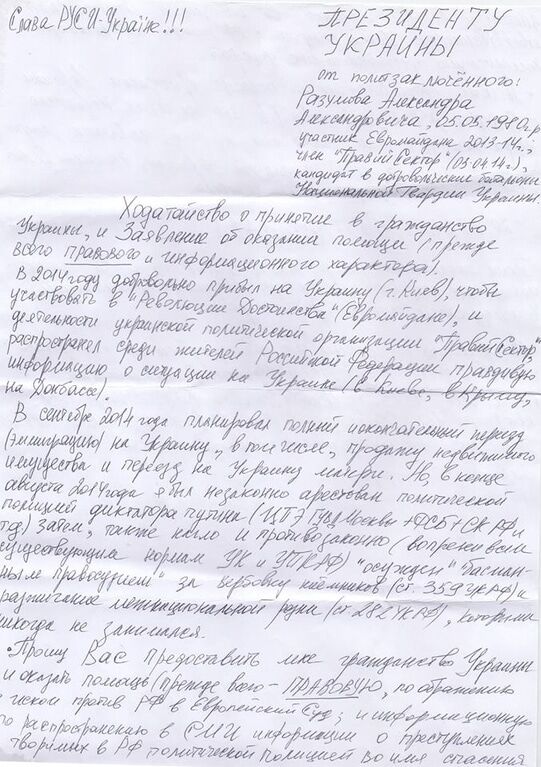 Слава РУСИ-Україне!!!
ПРЕЗИДЕНТУ
УКРАИНЫ
от политзаключённого:
Разумова Александра
Александровича, 05.05.1980г.р.
участник Евромайдана 2013-14г.;
член "Правий Сектор" (03.04.14г.),
кандидат в добровольческие батальоны
Национальной Гвардии Украины
Ходатайство о принятие в гражданство
Украины, и Заявление об оказании помощи (прежде
всего правового и информационного характера).
В 2014 году добровольно прибыл на Украину (г. Киев), чтобы
участвовать в "Революции Достоинства" (Евромайдане), и
деятельности украинской политической организации "Правий Сектор",
распространял среди жителей Российской Федерации правдивую
информацию о ситуации на Украине (в Киеве, в Крыму,
на Донбассе).
В сентябре 2014 года планировал полный и окончательный переезд
(эмиграцию) на Украину, в том числе, продажу недвижимого
имущества и переезд на Украину матери. Но, в конце
августа 2014 года я был незаконно арестован политической
полицией диктатора путина (ЦПЭ ГУВД Москвы + ФСБ + СК РФ и
тд) Затем, также нагло и противозаконно (вопреки всем
существующим нормам УК и УПК РФ) "осужден" "басман-
ным правосудием" за вербовку наёмников (ст. 359 УК РФ) и
разжигание межнациональной розни (ст 282 УК РФ), которыми
никогда не занимался.
• Прошу Вас предоставить мне гражданство Украины
и оказать помощь (прежде всего - ПРАВОВУЮ, по обращению
с иском против РФ в Европейский Суд; и информационную
по распространению в СМИ информации о преступлениях
творимых в РФ политической полицией во имя спасения